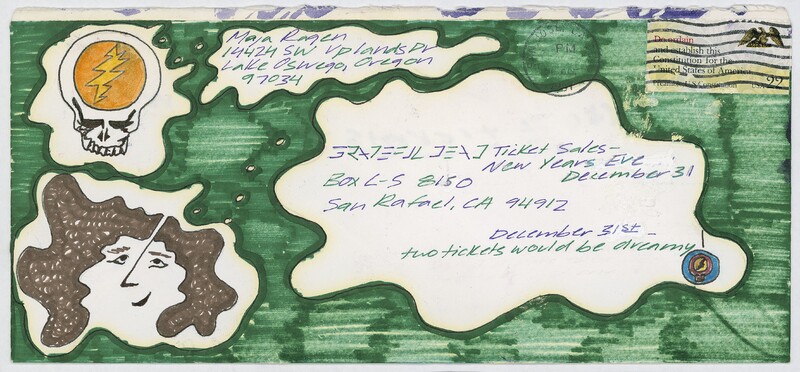 Maia Ragen
14424 SW Uplands Dr
Lake Oswego, Oregon
97034
We
and establish this
Constitution for the
United States of America
22
GRATEFUL DEAD Ticket Sales-
New Years Eve
Box C-S 8150 December 31
San Rafael, CA 94912
December 31st -
two tickets would be dreamy